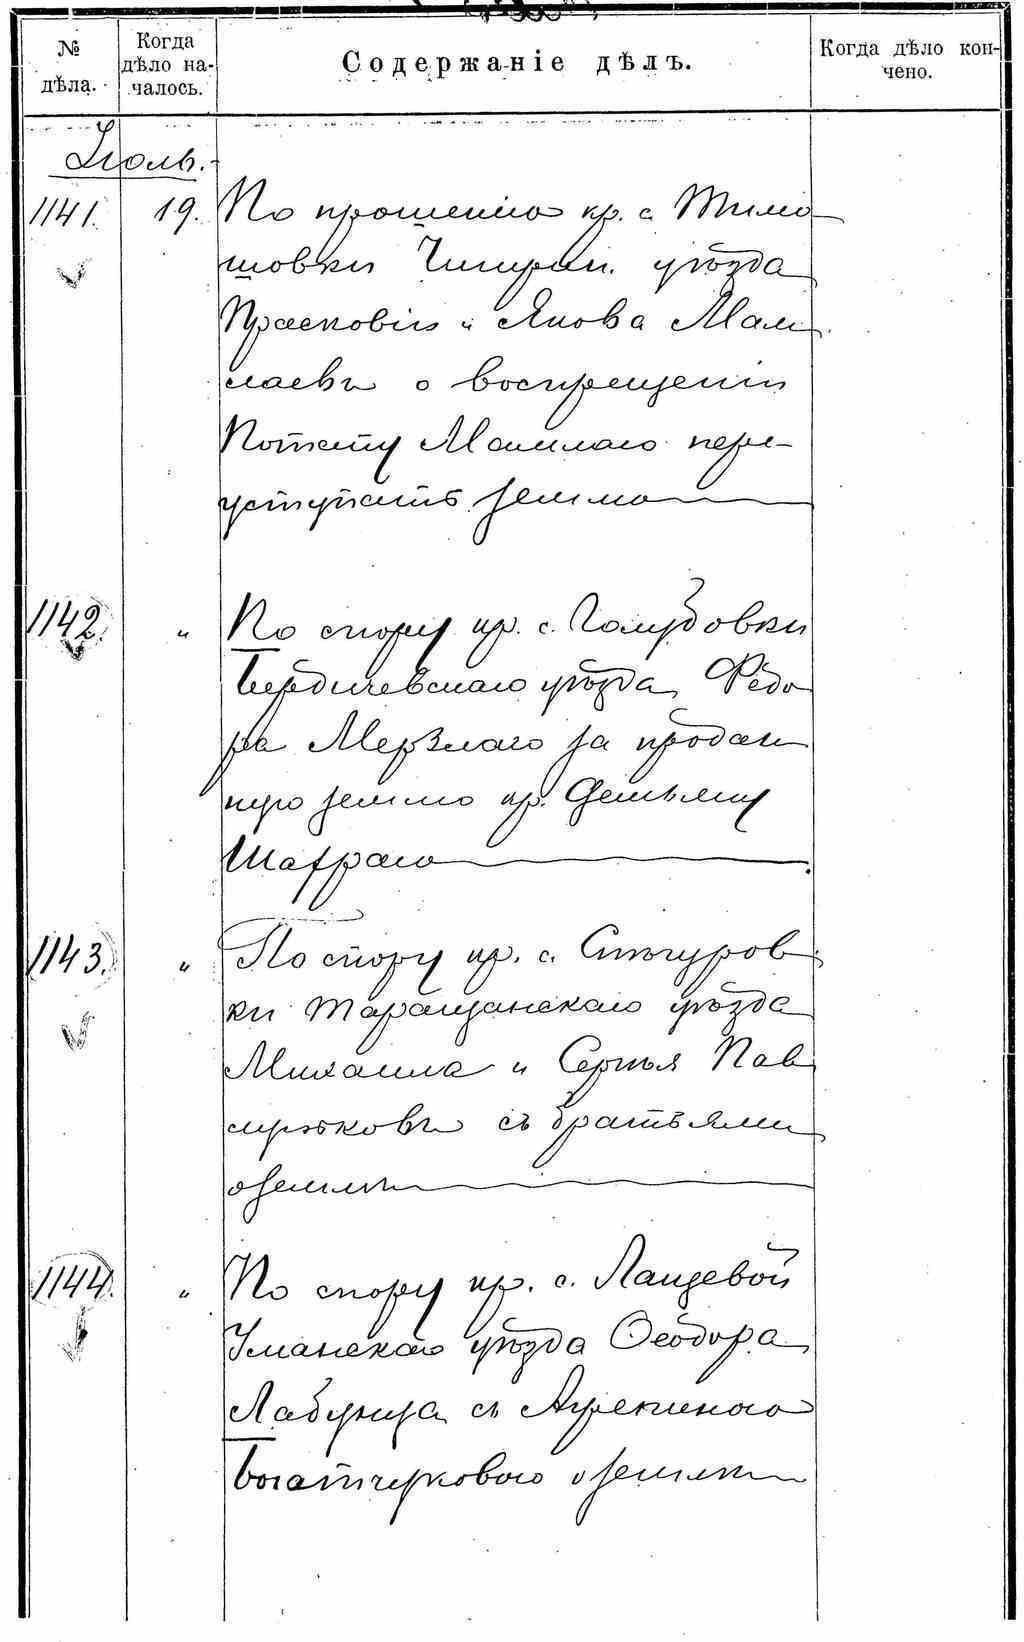 № дѣла.
Когда дѣло на-
чалось.
Содержаніе дѣлъ.
Когда дѣло кон-
чено.
Іюль.
1141. 19. По прошенію кр. с. Тимо
шовки Чигирин. уѣзда
Прасковіи и Якова Мам
лаевъ о воспрещеніи
Потапу Мамлаю пере
уступать землю
1142. " По спору кр. с. Голубовки
Бердичевскаго уѣзда Ѳедо
ра Мерзлаго за продан
ную землю кр. Демьяну
Шафраю
1143. " По спору кр. с. Снѣгуров
ки Таращанскаго уѣзда
Михаила и Сергѣя Пав
лусковъ съ братьями
о землѣ
1144. " По спору кр. с. Лащевой
Уманскаго уѣзда Ѳеодора
Лабунца съ Агрепиною
Богатчуковою о землѣ